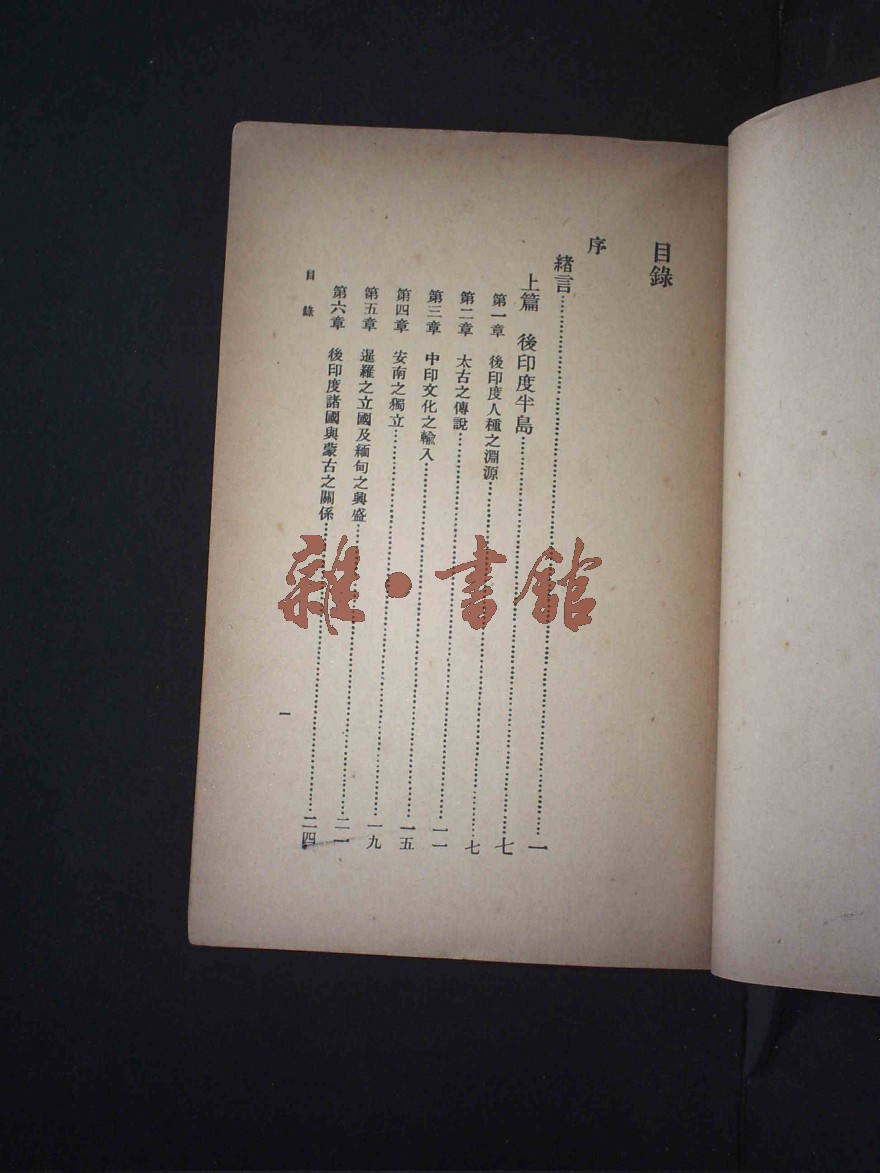 目錄
序
緒言……一
上篇　後印度半島……七
第一章　後印度人種之淵源……七
第二章　太古之傳說……一一
第三章　中印文化之輸入……一五
第四章　安南之獨立……一九
第五章　暹羅之立國及緬甸之興盛……二一
第六章　後印度諸國與蒙古之關係……二四
目錄
一
雜·書館